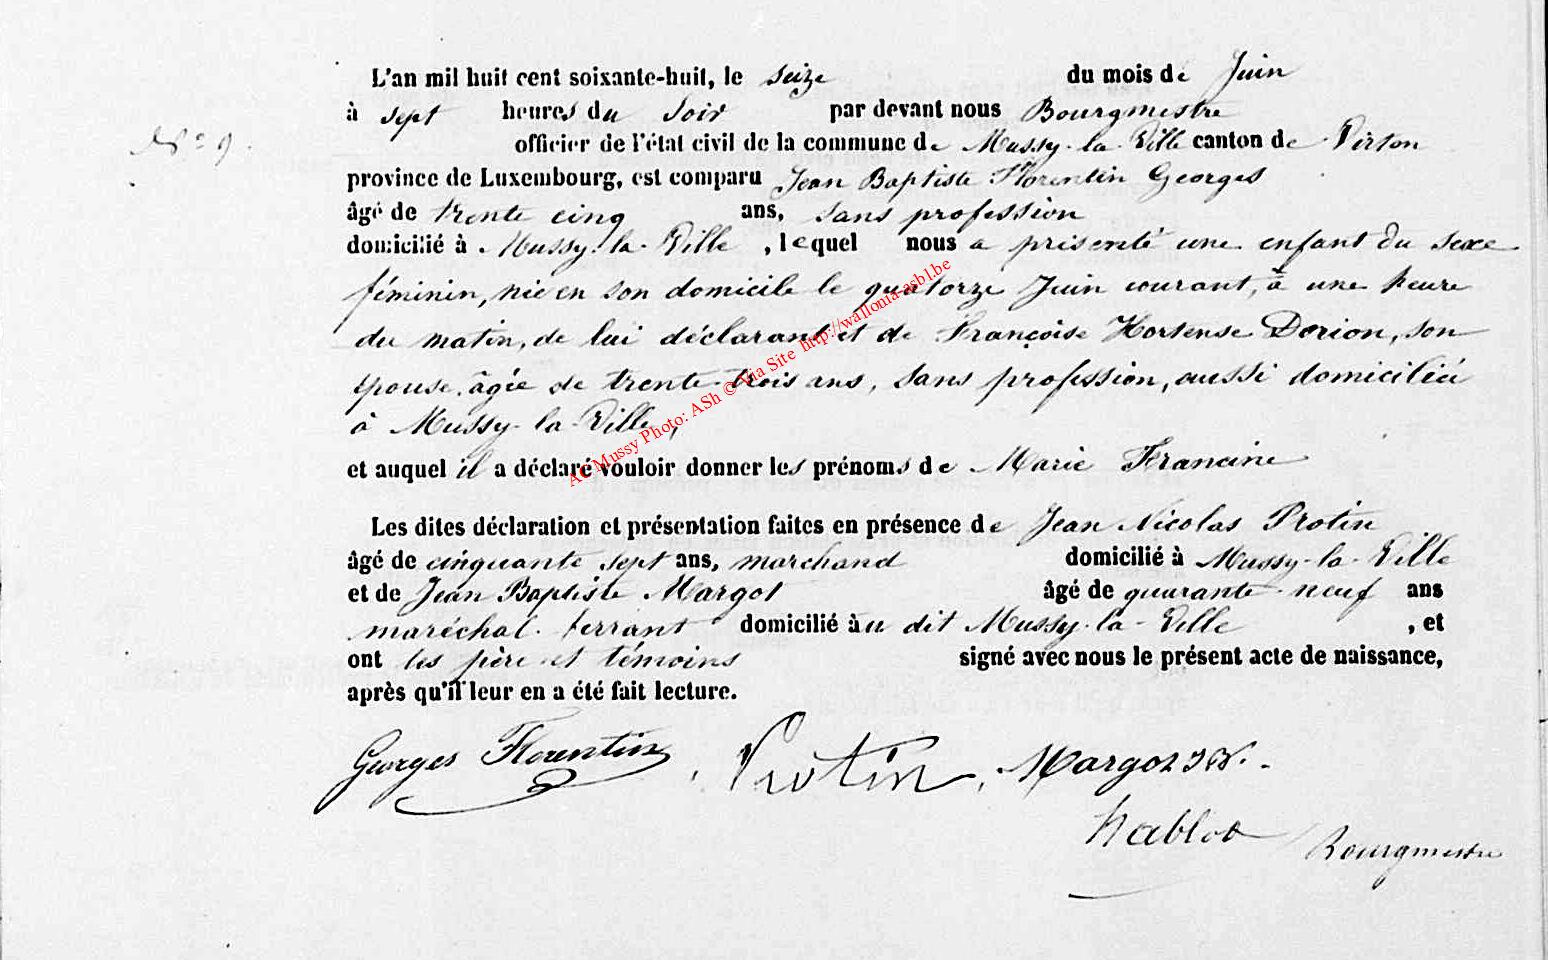 L'an mil huit cent soixante-huit, le seize du mois de Juin
à sept heures du Soir par devant nous Bourgmestre
N° 9.
officier de l'état civil de la commune de Mussy-la-Ville canton de Virton
province de Luxembourg, est comparu Jean Baptiste Florentin Georges
âgé de trente cinq ans, sans profession
domicilié à Mussy-la-Ville, lequel nous a présenté une enfant du sexe
féminin, née en son domicile le quatorze Juin courant, à une heure
du matin, de lui déclarant et de Françoise Hortense Dorion, son
épouse, âgée de trente-trois ans, sans profession, aussi domiciliée
à Mussy-la-Ville,
et auquel il a déclaré vouloir donner les prénoms de Marie Francine
Les dites déclaration et présentation faites en présence de Jean Nicolas Protin
âgé de cinquante sept ans, marchand domicilié à Mussy-la-Ville
et de Jean Baptiste Margot âgé de quarante-neuf ans
maréchal-ferrant domicilié àu dit Mussy-la-Ville, et
ont les père et témoins signé avec nous le présent acte de naissance,
après qu'il leur en a été fait lecture.
Georges Florentin, Protin, Margot
Bourgmestre
AC Mussy Photo: ASh © Via Site http://wallonia-asbl.be